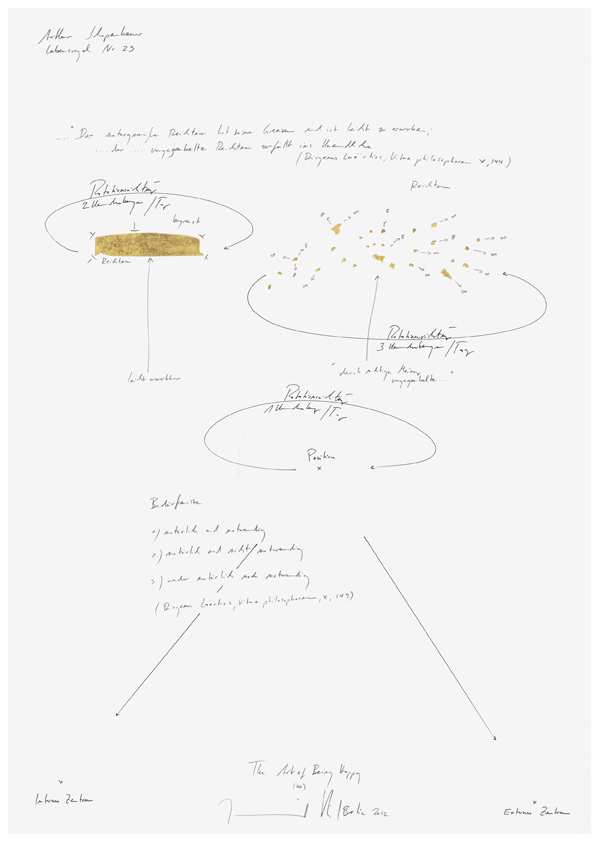 Arthur Schopenhauer
Lebensregel Nr. 29
..." Der naturgemäße Reichtum hat seine Grenzen und ist leicht zu erwerben;
... der ... vorgegaukelte Reichtum zerfällt ins Unendliche
(Diogenes Laërtius, Vitae philosophorum X, 144)
Reichtum
Rotationsrichtung
2 Umdrehungen / Tag
begrenzt
Reichtum
∞
Rotationsrichtung
3 Umdrehungen / Tag
leicht erwerbbar
" durch nichtige Meinung
vorgegaukelte..."
Rotationsrichtung
1 Umdrehung / Tag
Position
x
Bedürfnisse
1) natürlich und notwendig
2) natürlich und nicht notwendig
3) weder natürlich noch notwendig
(Diogenes Laërtius, Vitae philosophorum, X, 149)
The Art of Being Happy
x
Internes Zentrum
/ Berlin 2012
x
Externes Zentrum